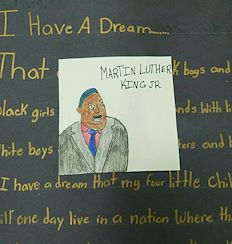 I Have A Dream......
That
MARTIN LUTHER
KING JR
k boys and
black girls
nds With li
white boys
ters and b
I have a dream that my four little Chil
ill one day live in a nation Where th